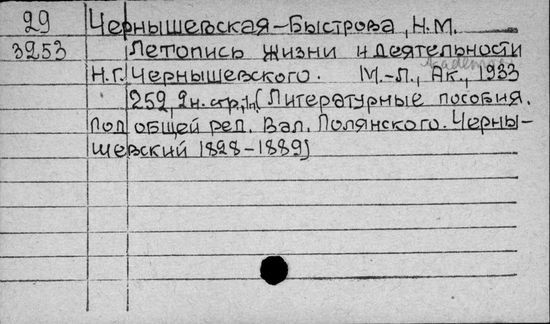 29 Чернышевская-Быстрова, Н.М.
3253 Летопись жизни и деятельности
Academia
Н.Г. Чернышевского. М.-Л., Ак., 1933
252, 2 н. стр., (Литературные пособия.
Под общей ред. Вал. Полянского. Черны-
шевский 1828-1889)